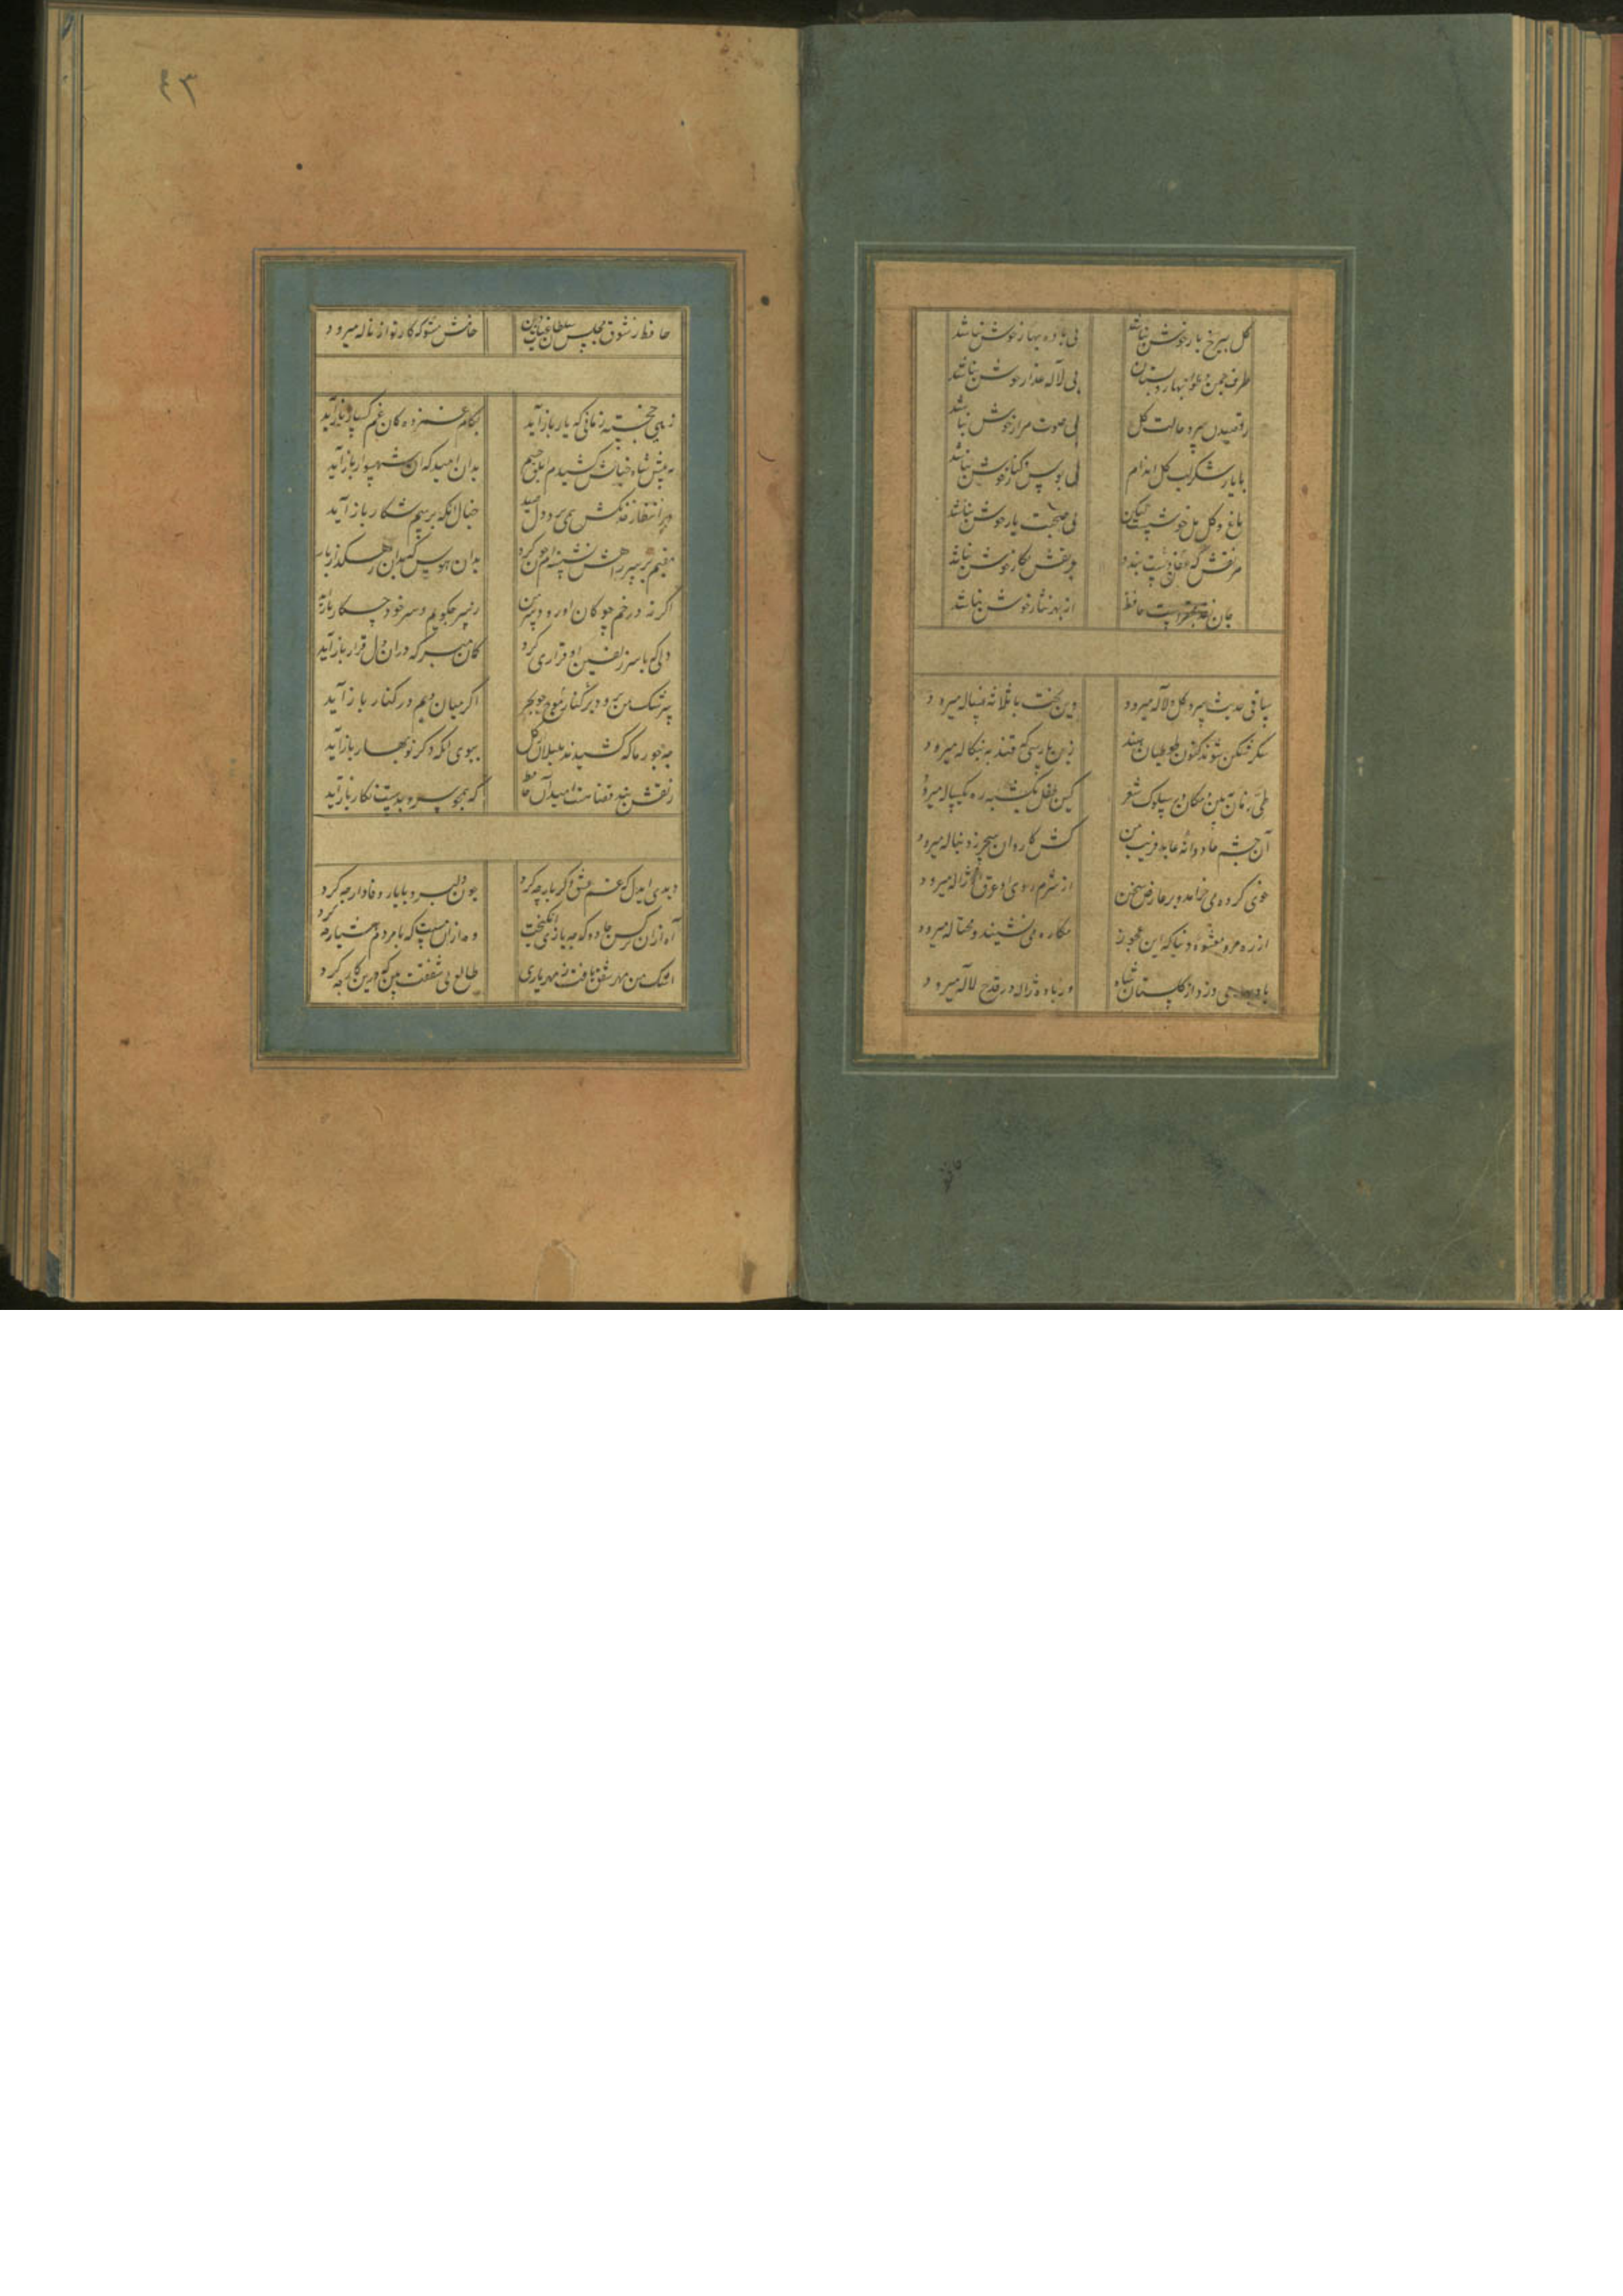 گل بی رخ یار خوش نباشد بی باده بهار خوش نباشد
طرف چمن و هوای بستان بی لاله عذار خوش نباشد
رقصیدن سرو و حالت گل بی صوت هزار خوش نباشد
با یار شکرلب گل اندام بی بوس و کنار خوش نباشد
باغ و گل و مل خوشست لیکن بی صحبت یار خوش نباشد
هر نقش که دست بندد جز نقش نگار خوش نباشد
جان نقد محقرست حافظ از بهر نثار خوش نباشد
ساقی حدیث سرو و گل و لاله میرود وین بحث با ثلاثه غساله میرود
شکر شکن شوند کنون طوطیان هند زین پارسی که قند به بنگاله میرود
طی زمان ببین و مکان در سلوک شعر کین طفل یکشبه ره یکساله میرود
آن چشم جادوانه عابد فریب بین کش کاروان سحر ز دنباله میرود
خوی کرده می خرامد و بر عارض سمن از شرم روی او عرق از ژاله میرود
از ره مرو بعشوه دنیا که این عجوز مکاره می نشیند و محتاله میرود
باد می وزد از گلستان شاه وز باده ژاله در قدح لاله میرود
حافظ
۴۳
حافظ ز شوق مجلس سلطان غیاث دین خامش مشو که کار تو از ناله میرود
زهی خجسته زمانی که یار باز آید بکام غمزدگان غمگسار باز آید
به پیش شاه خیالش کشیدم ابلق چشم بدان امید که آن شهسوار باز آید
در انتظار خدنگش همی پرد دل صید خیال آنکه برسم شکار باز آید
مقیم بر سر راهش نشسته ام چون گرد بدان هوس که بدین رهگذار باز
اگر نه در خم چوگان او رود سر من ز سر چگویم و سر خود چه کار باز آید
دلی که با سر زلفین او قراری کرد گمان مبر که در آن دل قرار باز آید
سرشک من نزند موج بر کنار چو بحر اگر میان ویم در کنار باز آید
چه جورها که کشیدند بلبلان ببوی آنکه دگر نوبهار باز آید
ز نقش بند قضا هست امید آن حافظ که همچو سرو بدست نگار باز آید
دیدی ای دل که غم عشق دگر بار چه کرد چون دلبر و با یار وفادار چه کرد
آه از آن نرگس جادو که چه بازی انگیخت وه از آن مست که با مردم هشیار چه کرد
اشک من رنگ شفق یافت ز بی مهری یار طالع بی شفقت بین که درین کار چه کرد